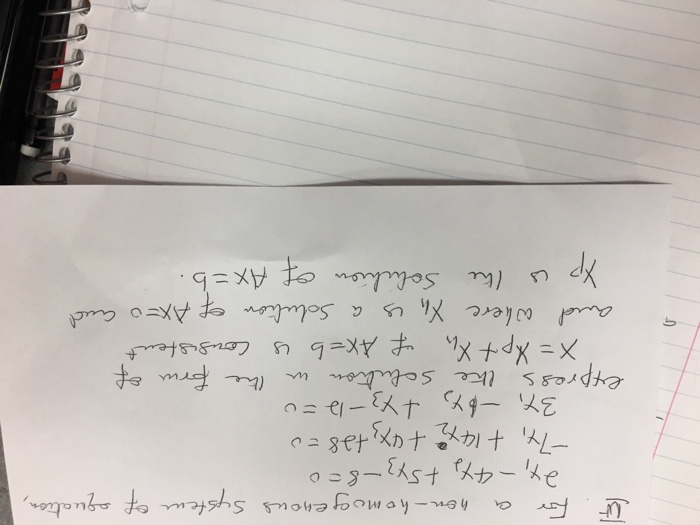 For a non-homogenous system of equation,
2x₁ - 4x₂ + 5x₃ - 8 = 0
-7x₁ + 14x₂ + 4x₃ + 28 = 0
3x₁ - 6x₂ + x₃ - 12 = 0
express the solution in the form of
X = Xp + Xh if AX = b is consistent
and where Xh is a solution of AX = 0 and
Xp is the solution of AX = b.